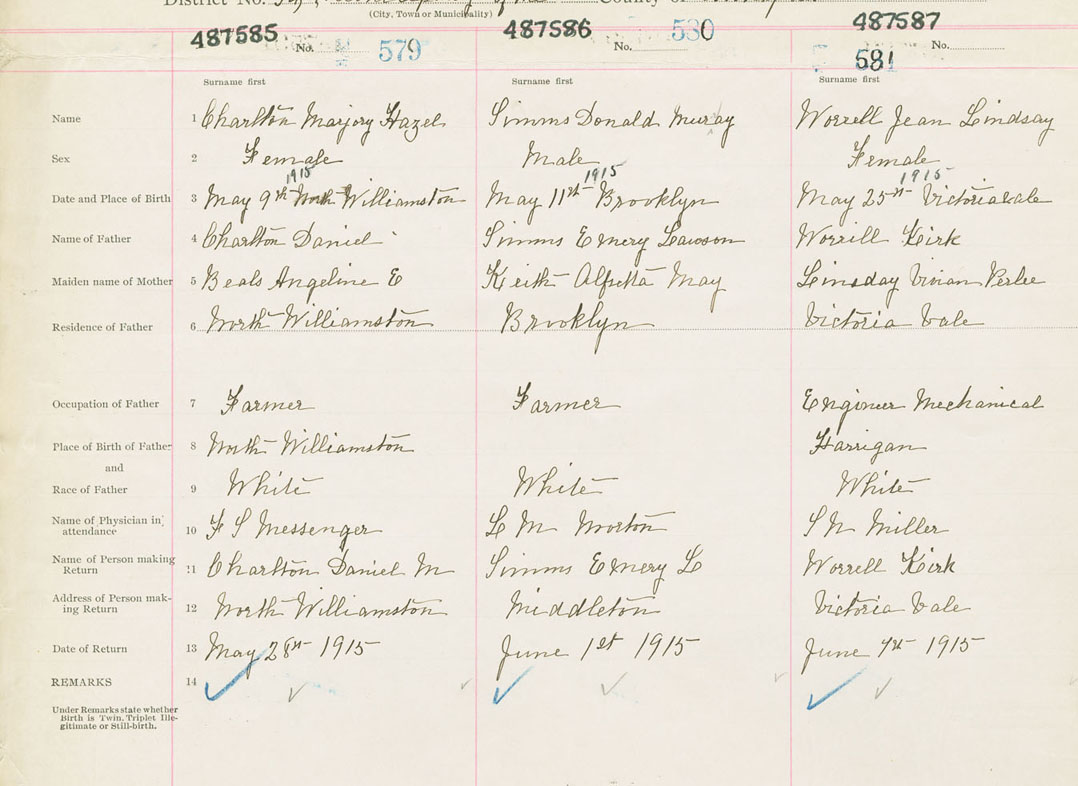 District No.
County of
(City, Town or Municipality)
487585 487586 487587
No. 579 No. 580 No.
581
Surname first Surname first Surname first
Name 1 Charlton Marjory Hazel Simms Donald Murray Worrell Jean Lindsay
Sex 2 Female Male Female
1915 1915 1915
Date and Place of Birth 3 May 9th North Williamston May 11st Brooklyn May 25st Victoriavale
Name of Father 4 Charlton Daniel Simms Emery Lawson Worrill Kirk
Maiden name of Mother 5 Beals Angeline E Keith Alfretta May Linsday Vivian Perlee
Residence of Father 6 North Williamston Brooklyn Victoria Vale
Occupation of Father 7 Farmer Farmer Engineer Mechanical
Place of Birth of Father 8 North Williamston Harrigan
and
Race of Father 9 White White White
Name of Physician in attendance 10 F S Messenger L M Morton S N Miller
Name of Person making Return 11 Charlton Daniel M Simms Emery L Worrell Kirk
Address of Person making Return 12 North Williamston Middleton Victoria Vale
Date of Return 13 May 28th 1915 June 1st 1915 June 7st 1915
REMARKS 14
Under Remarks state whether
Birth is Twin, Triplet Ille-
gitimate or Still-birth.